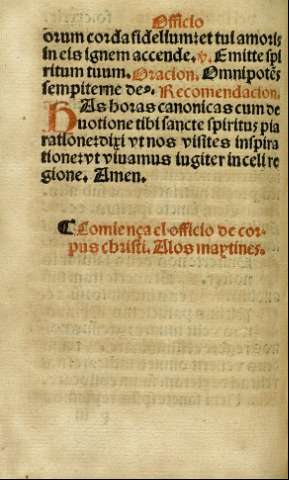 Officio
orum corda fidelium: et tui amoris
in eis ignem accende. v. Emitte spi
ritum tuum. Oracion. Omnipotēs
sempiterne de⁹. Recomendacion.
HAs horas canonicas cum de
uotione tibi sancte spiritus pia
ratione: dixi vt nos visites inspira
tione: vt viuamus iugiter in celi re
gione. Amen.
¶ Comiença el officio de cor
pus christi. A los maytines.